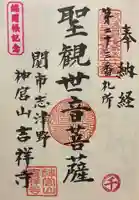 奉納経
第二十二番札所
聖観世音菩薩
関市志津野
神宮山 吉祥寺
御開帳記念